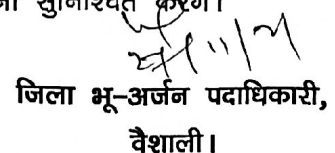 सुनिश्चित करेंगे।
जिला भू-अर्जन पदाधिकारी,
वैशाली।